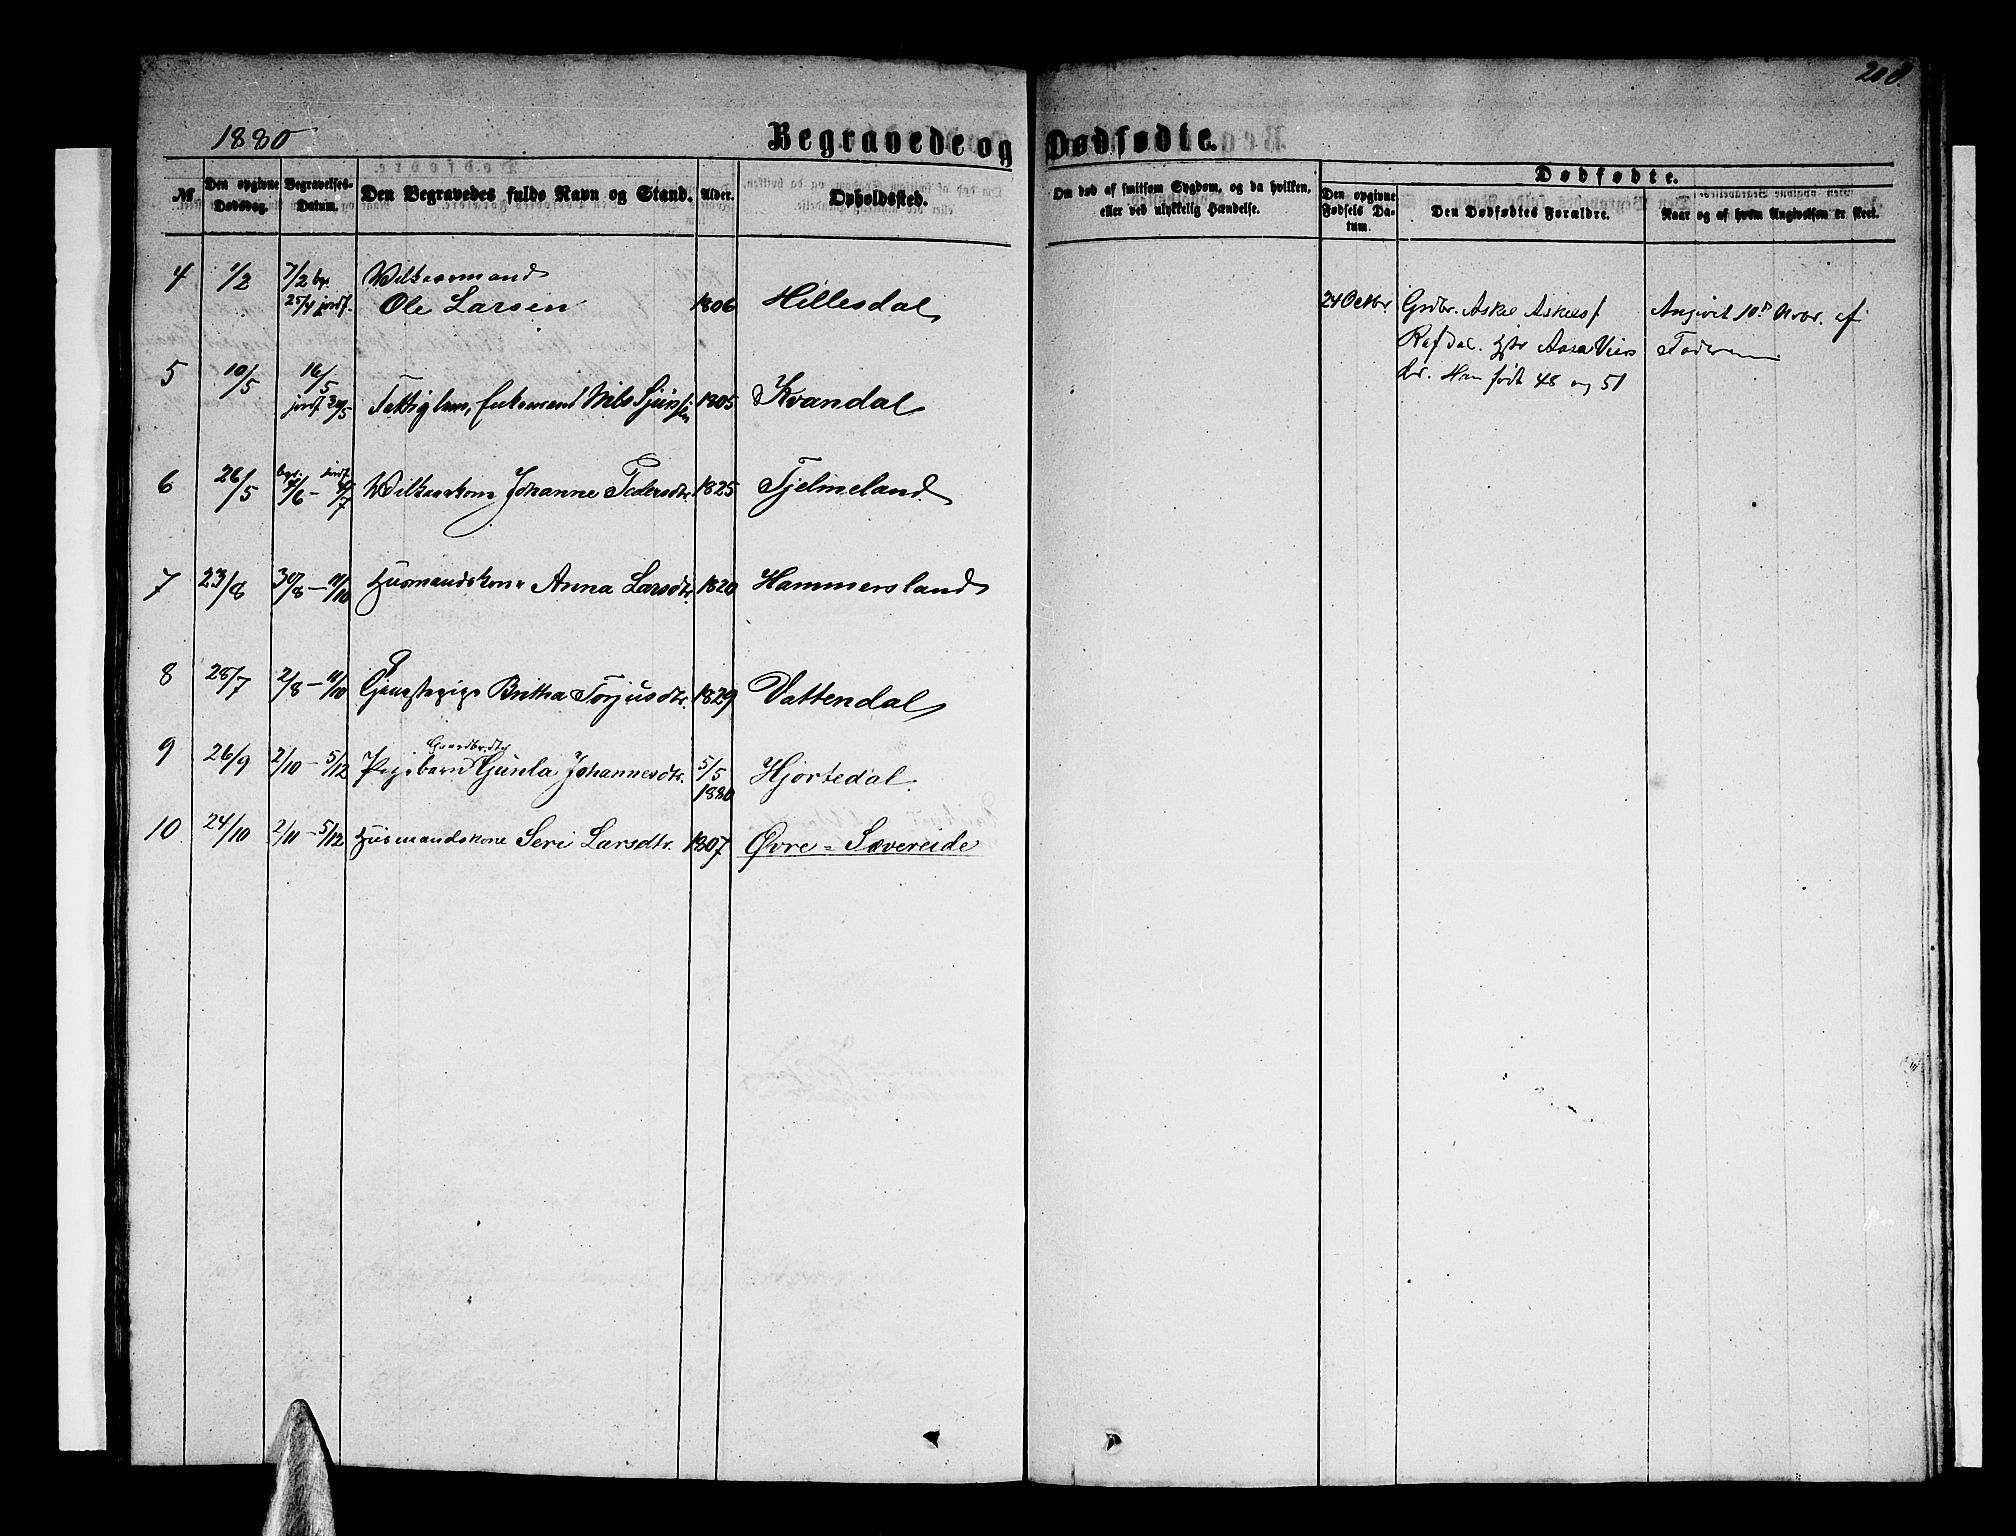 208.
1880
Begravede og Dødfødte.
№
Den opgivne Dødsdag.
Begravelses-Datum.
Den Begravedes fulde Navn og Stand.
Alder.
Opholdssted.
Om død af smitsom Sygdom, og da hvilken, eller ved ulykkelig Hændelse.
Dødfødte.
Den opgivne Fødsels Datum.
Den Dødfødtes Forældre.
Naar og af hvem Angivelsen er skeet.
4 1/2 7/2 bgr. 25/4 jordf. Vilkaarmand
Ole Larsen 1806 Hillesdal
5 10/5 16/5 jordf 30/5 Fattiglem, Enkemand Nils Sjursen 1805 Kvandal
6 26/5 4/7 Vilkaarkone Johanne Pedersdtr. 1825 Tjelmeland
7 23/8 30/8 – 11/10 Husmandskone Anna Larsdtr. 1820 Hammersland
8 28/7 2/8 – 11/10 Britha Torjusdtr. 1829 Vattendal
9 26/9 2/10 – 5/12 Gaardbr.dtr
Pigebarn Gunla Johannesdtr. 5/5 1880 Hjortedal.
10 24/10 2/11 – 5/12 Husmandskone Seri Larsdtr. 1807 Øvre - Sævereide
24 Octbr. Grdbr. Askel Askels
Refdal. Hstr Aasa Viers
dr. Han født 48 og 51
Angivet 10d Novbr. af
Faderen